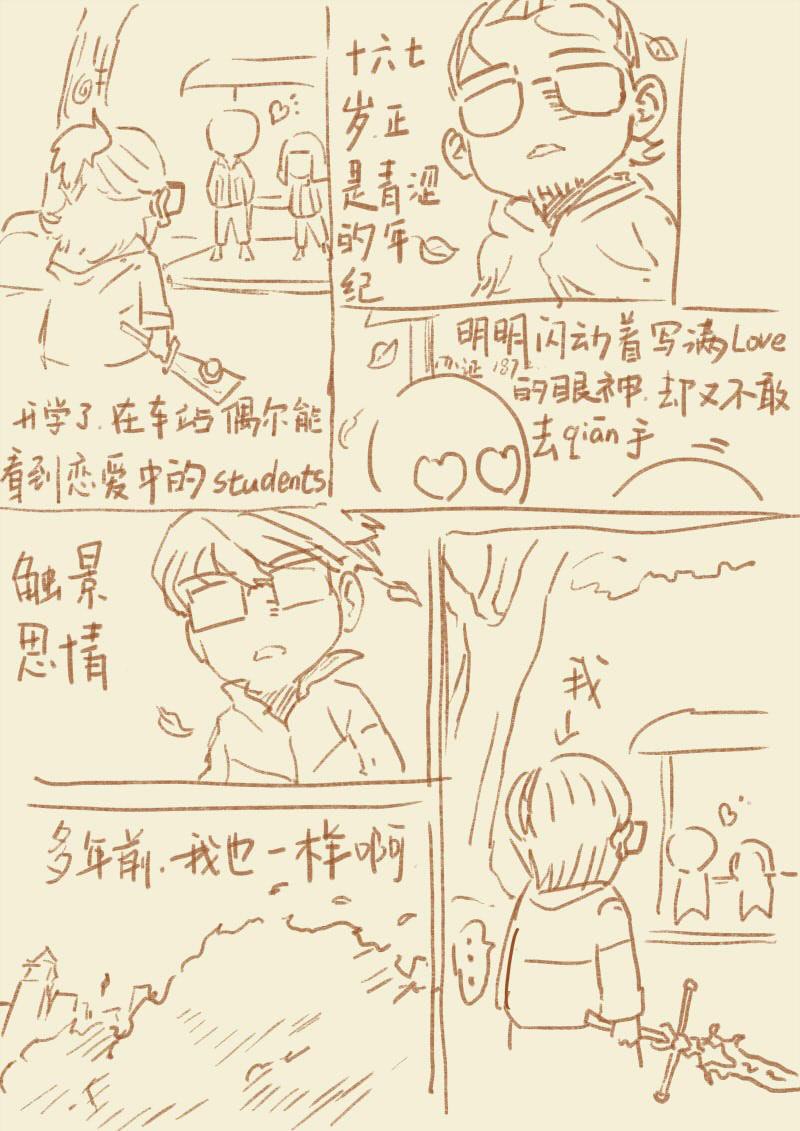 开学了.在车站偶尔能
看到恋爱中的students
十六七
岁.正
是青涩
的年
纪
明明闪动着写满Love
的眼神.却又不敢
去qiān手
触景
思情
多年前.我也一样啊
我